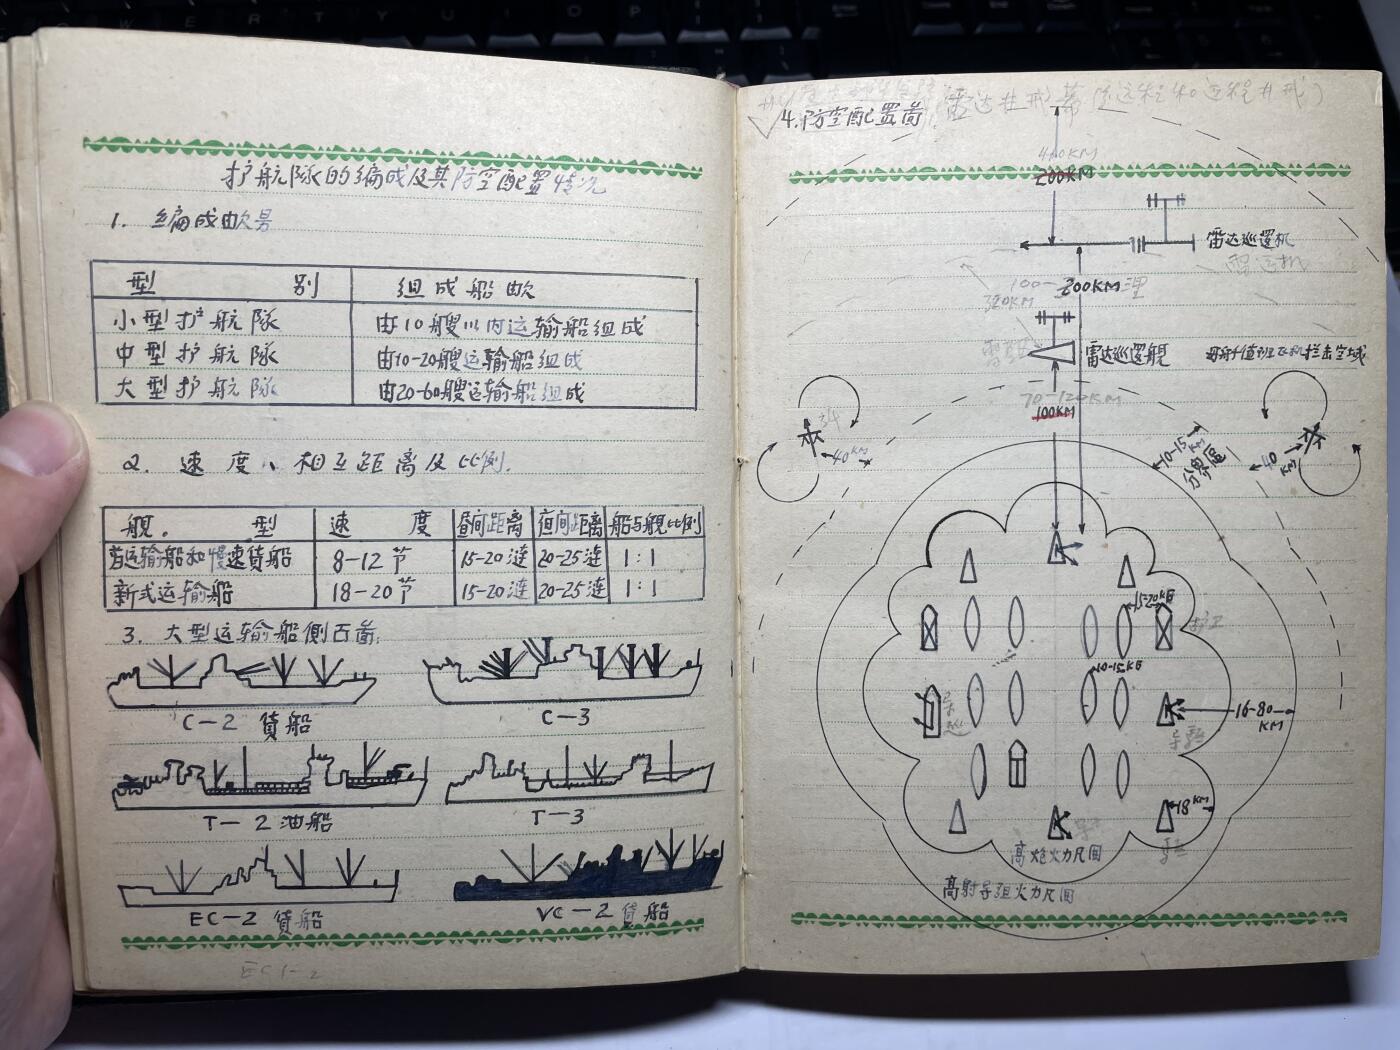 护航队的编成及其防空配置情况
1. 编成欧男
型 别 组成船欧
小型护航隊 由10艘以内运输船组成
中型护航隊 由10-20艘运输船组成
大型护航隊 由20-60艘运输船组成
2. 速度、相互距离及比例.
舰. 型 速 度 昼间距离 夜间距离 船与舰比例
旧运输船和慢速货船 8-12节 15-20涟 20-25涟 1:1
新式运输船 18-20节 15-20涟 20-25涟 1:1
3. 大型运输船侧面畣:
C-2 货船
C-3
T-2 油船
T-3
EC-2 货船
VC-2 货船
EC1-2
雷达壮戒幕(远程和近程壮戒)
4.防空配置畣
400KM
200KM
雷达巡逻机
100-200KM 浬
320KM
雷达巡逻舰
毋舰值班飞机拦击空域
70-120KM
100KM
40KM
10-15KM
分界區
40KM
15-20KB
护卫
10-15KB
16-80KM
18KM
高炮火力凡囬
高射导弹火力凡囬